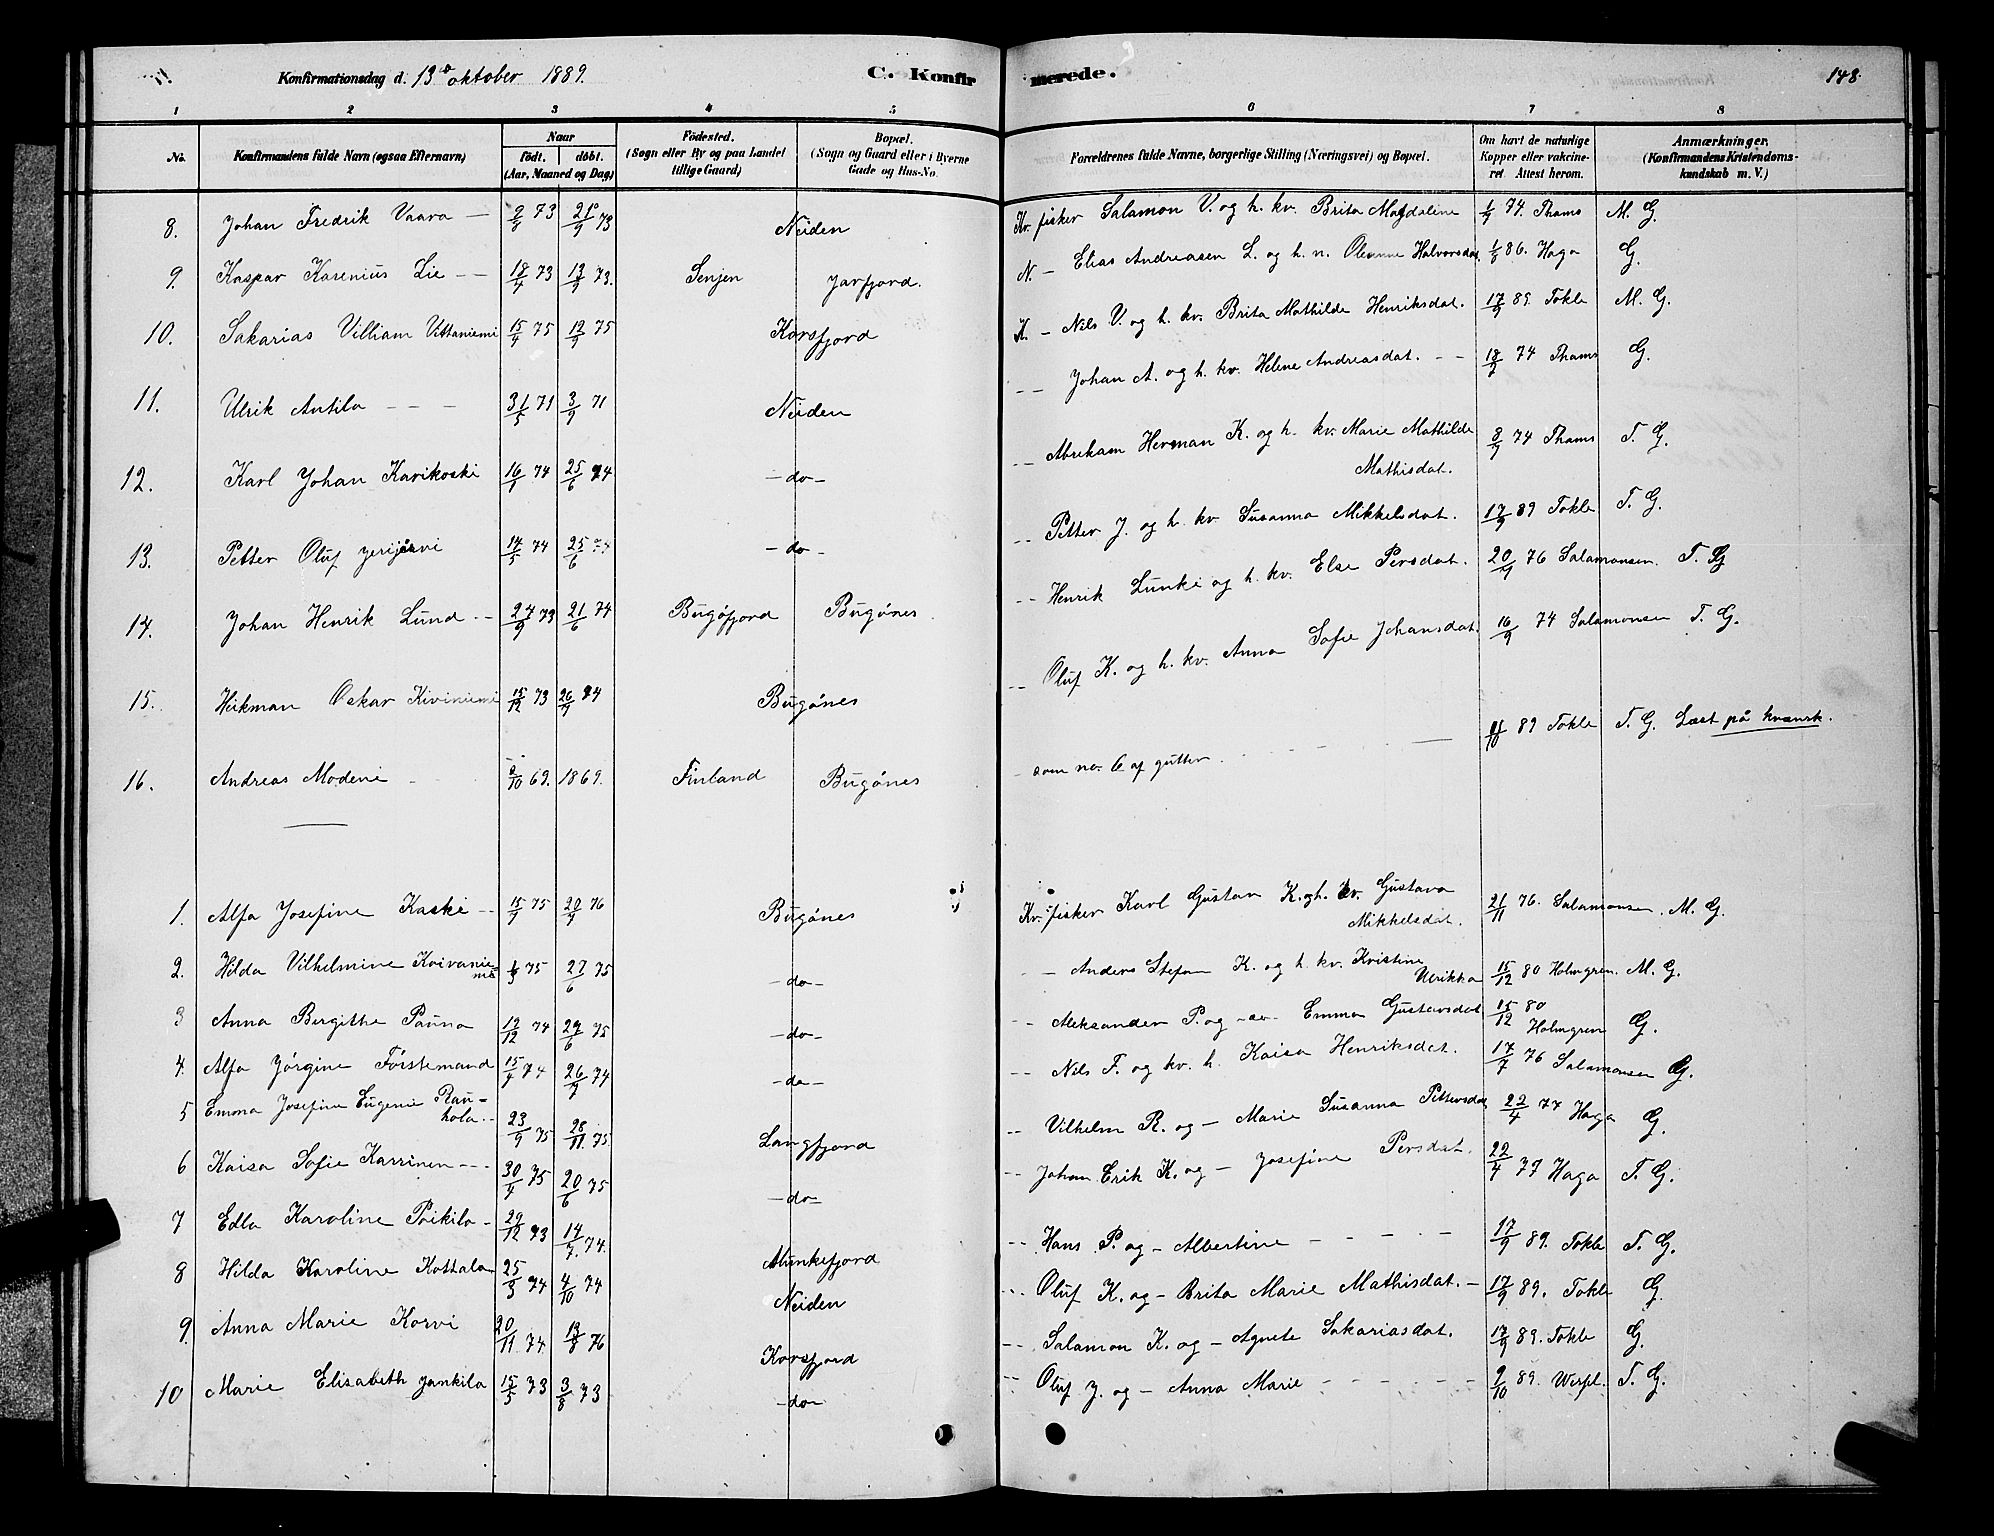 Konfirmationsdag d. 13de oktober 1889.
C. Konfirmerede.
148.
1 2 3 4 5 6 7 8
No. Konfirmandens fulde Navn (ogsaa Efternavn) Naar födt. döbt. (Aar, Maaned og Dag) Födested. (Sogn eller By og paa Landet tillige Gaard) Bopæl. (Sogn og Gaard eller i Byerne Gade og Hus-No. Forældrenes fulde Navne, borgerlige Stilling (Næringsvei) og Bopæl. Om havt de naturlige Kopper eller vakcineret. Attest herom. Anmærkninger. (Konfirmandens Kristendomskundskab m. V.)
8. Johan Fredrik Vaara — 73 21/9 73 Neiden Kv. fisker Salamon V. og h. kv. Brita Magdaline 1/9 74. Thams M. G.
9. Kaspar Karenius Lie — — 18/4 73 13/9 73. Senjen Jarfjord. N. — Elias Andreasen L. og h. n. Oleanne Halvorsdat. 86. Haga G.
10. Sakarias Villiam Vittaniemi 15/4 75 12/9 75 Korsfjord K. — Nils V. og h. kv. Brita Mathilde Henriksdat. 17/9 89. Tokle M. G.
11. Ulrik Antila — — — 31/5 71 3/9 71 Neiden — — Johan A. og h. kv. Helene Andreasdat. — — 18/7 74 Thams G.
12. Karl Johan Karikoski 16/1 74 25/6 74 — do — — — Abreham Herman K. og h. kv. Marie Mathilde Mathisdat. 8/7 74 Thams T. G.
13. Petter Oluf Jerijärvi 14/5 74 25/6 74 — do — — — Petter J. og h. kv. Susanna Mikkelsdat. 17/9 89 Tokle T. G.
14. Johan Henrik Lund — — 27/9 73 21/6 74 Bugöfjord Bugönes — — Henrik Lunki og h. kv. Else Persdat. 76 Salamonsen. T. G
15. Heikman Oskar Kiviniemi 15/12 73 26/7 74 Bugönes — — Oluf K. og h. kv. Anna Sofie Johansdat. 16/9 74 Salamonsen T. G.
16. Andreas Modeni — 69. 1869. Finland Bugönes — som no. 6 af gutter. 89 Tokle T. G. Læst på kvænsk.
1. Alfa Josefine Kaski — — 15/7 75 20/7 76 Bugönes Kv. fisker Karl Gustav K. og h. kv. Gustava Mikkelsdat. 21/11 76. Salamonsen. M. G.
2. Hilda Vilhelmine Koivaniemi 75 27/6 75 — do — — Anders Stefan K. og h. kv. Kristine Ulrikka 15/12 80 Holmgren. M. G.
3 Anna Bergithe Pauna 74 75 — do — — — Aleksander P. og — Emma Gustavsdat 15/12 80 Holmgren G.
4. Alfa Jörgine Förstemand 15/4 74 26/7 74 — do — — — Nils F. og kv. h. Kaisa Henriksdat. 17/7 76 Salamonsen G.
5 Emma Josefine Eugenie Rauhola. — 23/9 75 28/11 75 Langfjord — — Vilhelm R. og — Marie Susanna Pettersdat 22/4 77 Haga G.
6 Kaisa Sofie Karrinen — — — 30/4 75 20/6 75 — do — — — Johan Erik K. og — Josefine Persdat. 22/4 77 Haga T. G.
7 Edla Karoline Poikila — 29/12 73 14/7 74. Munkefjord — — Hans P. og — Albertine — — — — 17/9 89. Tokle T. G.
8 Hilda Karoline Kottala 25/3 74 4/10 74 Neiden — — Oluf K. og — Brita Marie Mathisdat. — 17/9 89. Tokle G.
9. Anna Marie Korvi 20/11 74 13/8 76 Korsfjord — — Salamon K. og — Agnete Sakariasdat. 17/9 89. Tokle G.
10 Marie Elisabeth Jankila 15/5 73 3/8 73 — do — — — Oluf J. og — Anna Marie — — — — 9/10 89. T. G.